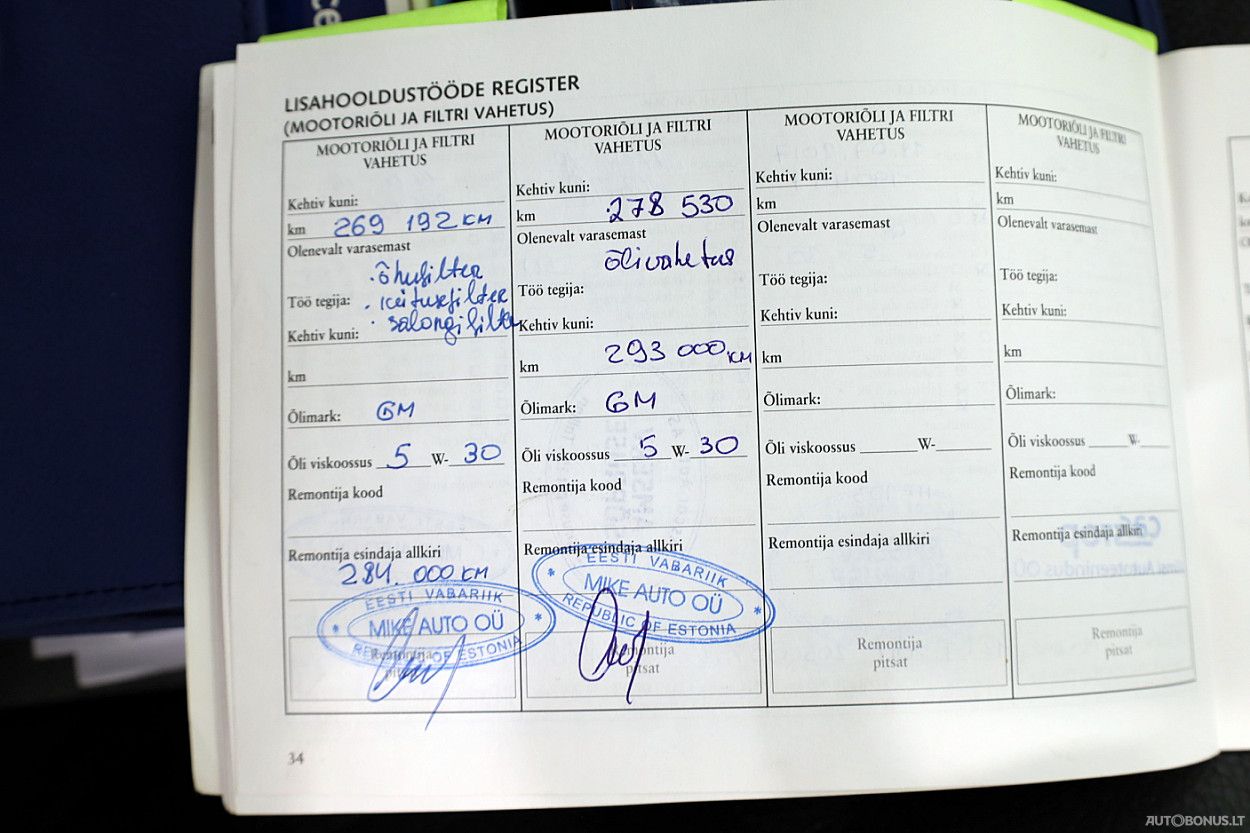 LISAHOOLDUSTÖÖDE REGISTER
(MOOTORIÕLI JA FILTRI VAHETUS)
MOOTORIÕLI JA FILTRI
VAHETUS
Kehtiv kuni:
km 269 192 KM
Olenevalt varasemast
· õhufilter
Töö tegija: · keitusefilter
Kehtiv kuni: · salongifilter
km
Õlimark: GM
Õli viskoossus 5 W- 30
Remontija kood
Remontija esindaja allkiri
284. 000 KM
EESTI VABARIIK
MIKE AUTO OÜ
REPUBLIC OF ESTONIA
Remontija
pitsat
MOOTORIÕLI JA FILTRI
VAHETUS
Kehtiv kuni:
km 278 530
Olenevalt varasemast
õlivahetus
Töö tegija:
Kehtiv kuni:
km 293 000 KM
Õlimark: GM
Õli viskoossus 5 W- 30
Remontija kood
Remontija esindaja allkiri
EESTI VABARIIK
MIKE AUTO OÜ
REPUBLIC OF ESTONIA
Remontija
pitsat
MOOTORIÕLI JA FILTRI
VAHETUS
Kehtiv kuni:
km
Olenevalt varasemast
Töö tegija:
Kehtiv kuni:
km
Õlimark:
Õli viskoossus ______W-______
Remontija kood
Remontija esindaja allkiri
Remontija
pitsat
MOOTORIÕLI JA FILTRI
VAHETUS
Kehtiv kuni:
km
Olenevalt varasemast
Töö tegija:
Kehtiv kuni:
km
Õlimark:
Õli viskoossus ______W-____
Remontija kood
Remontija esindaja allkiri
Remontija
pitsat
34
AUTOBONUS.LT